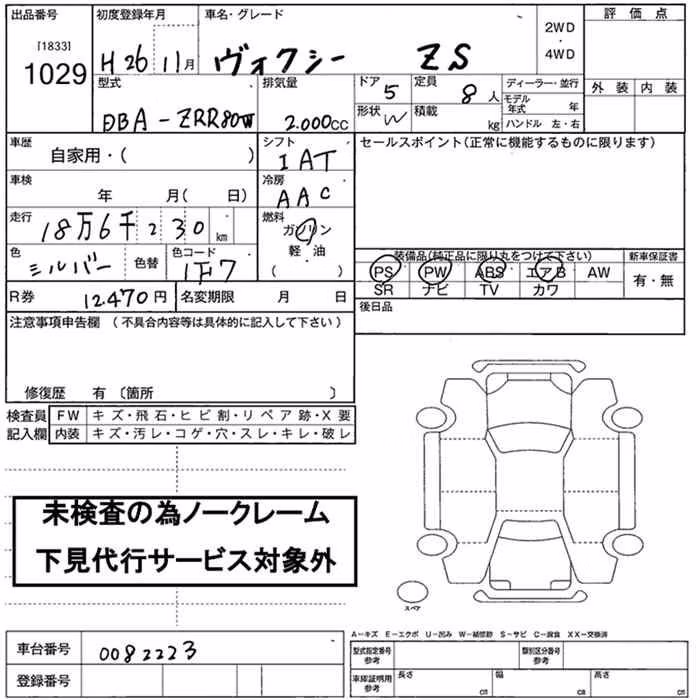 出品番号
[1833]
1029
初度登録年月
H26 11月
車名・グレード
ヴォクシー ZS
2WD
・
4WD
評価点
外装 内装
型式
DBA-ZRR80W
排気量
2.000cc
ドア
5
定員
8人
形状
W
積載
kg
ディーラー・並行
モデル年式 年
ハンドル 左・右
車歴
自家用・( )
シフト
IAT
セールスポイント(正常に機能するものに限ります)
車検
年 月( 日)
冷房
AAC
走行
18万6千230km
燃料
ガソリン
軽・油
・
( )
色
シルバー
色替
色コード
1F7
装備品(純正品に限り丸をつけて下さい)
PS PW ABS エアB AW
SR ナビ TV カワ
新車保証書
有・無
R券
12470円
名変期限 月 日
後日品
注意事項申告欄 (不具合内容等は具体的に記入して下さい)
修復歴 有 〔箇所 〕
検査員
記入欄
FW キズ・飛石・ヒビ割・リペア跡・X要
内装 キズ・汚レ・コゲ・穴・スレ・キレ・破レ
未検査の為ノークレーム
下見代行サービス対象外
スペア
A-キズ E-エクボ U-凹み W-補修跡 S-サビ C-腐食 XX-交換済
車台番号
0082223
登録番号
型式指定番号
参考
類別区分番号
参考
車庫証明用
参考
長さ cm
幅 cm
高さ cm